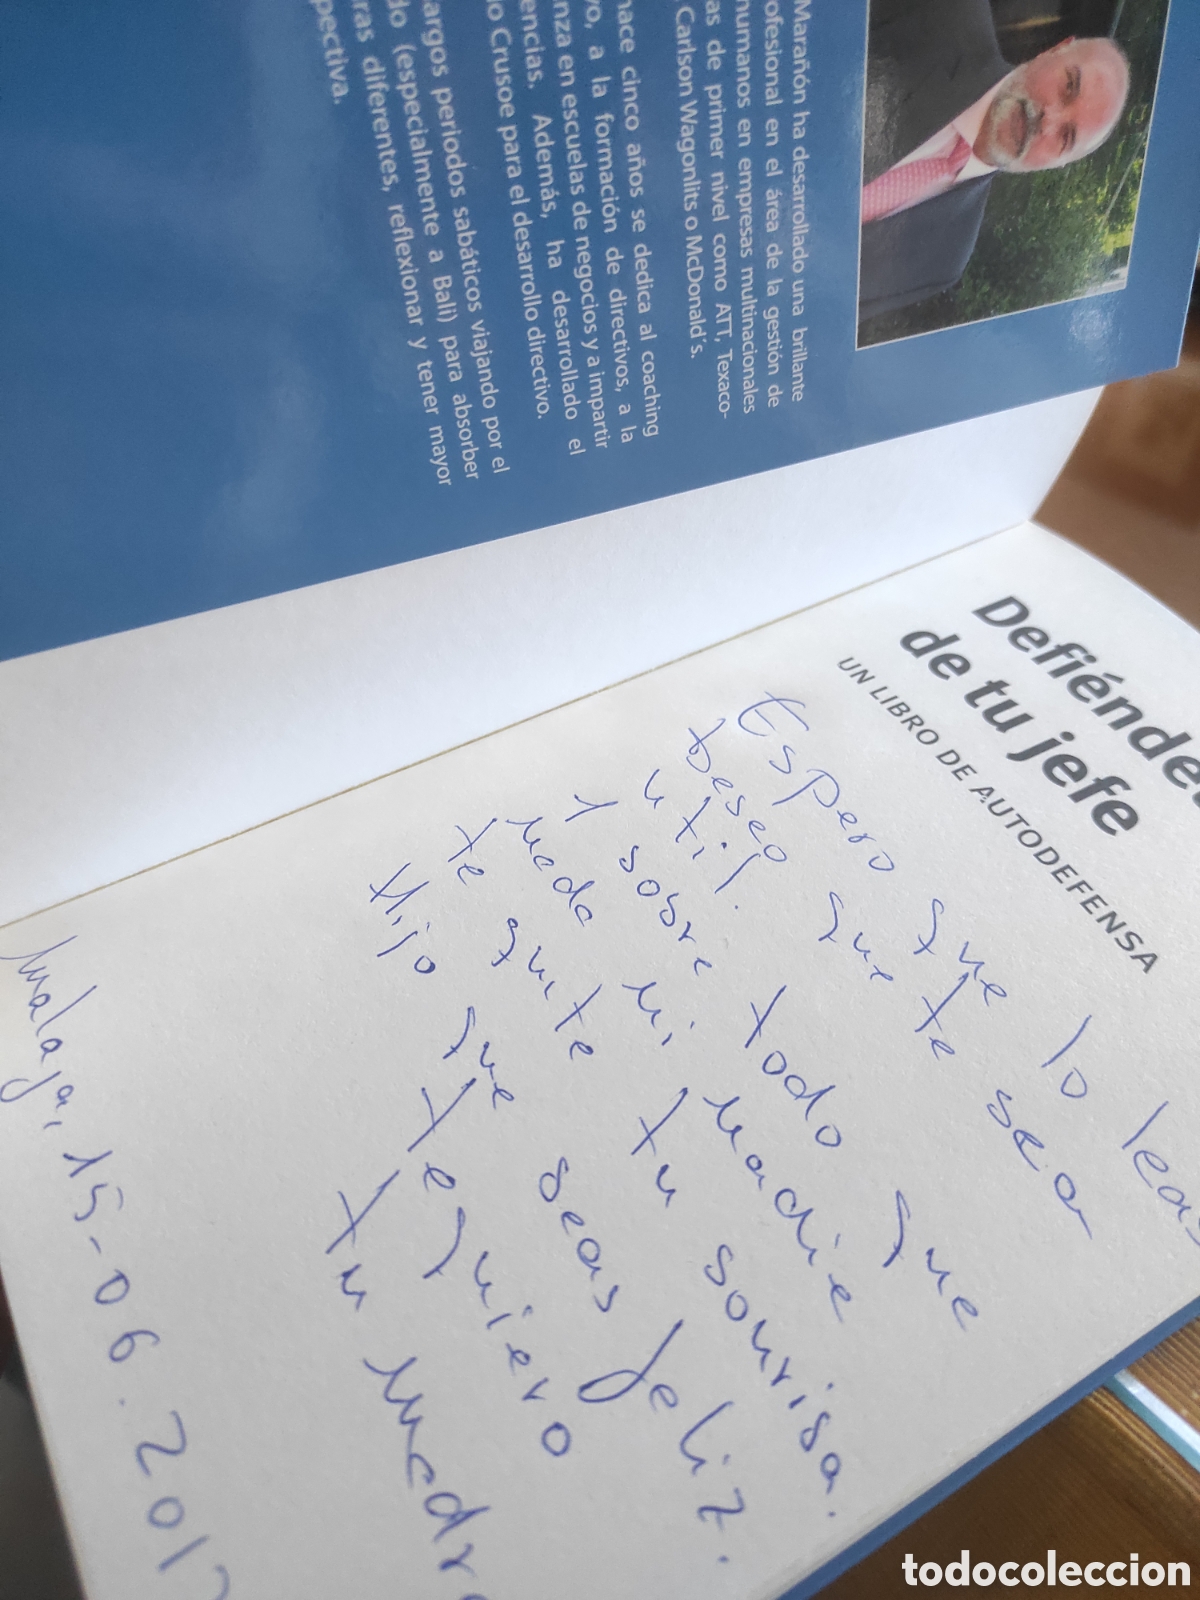 Marañón ha desarrollado una brillante
ofesional en el área de la gestión de
humanos en empresas multinacionales
as de primer nivel como ATT, Texaco-
, Carlson Wagonlits o McDonald´s.
hace cinco años se dedica al coaching
vo, a la formación de directivos, a la
nza en escuelas de negocios y a impartir
encias. Además, ha desarrollado el
o Crusoe para el desarrollo directivo.
argos periodos sabáticos viajando por el
do (especialmente a Bali) para absorber
ras diferentes, reflexionar y tener mayor
pectiva.
Defiénde
de tu jefe
UN LIBRO DE AUTODEFENSA
Espero que lo leas
Deseo que te sea
util.
Y sobre todo que
nada ni nadie
te quite tu sonrisa.
Hijo que seas feliz.
te quiero
tu madre
Malaga, 15-06.201
todocoleccion